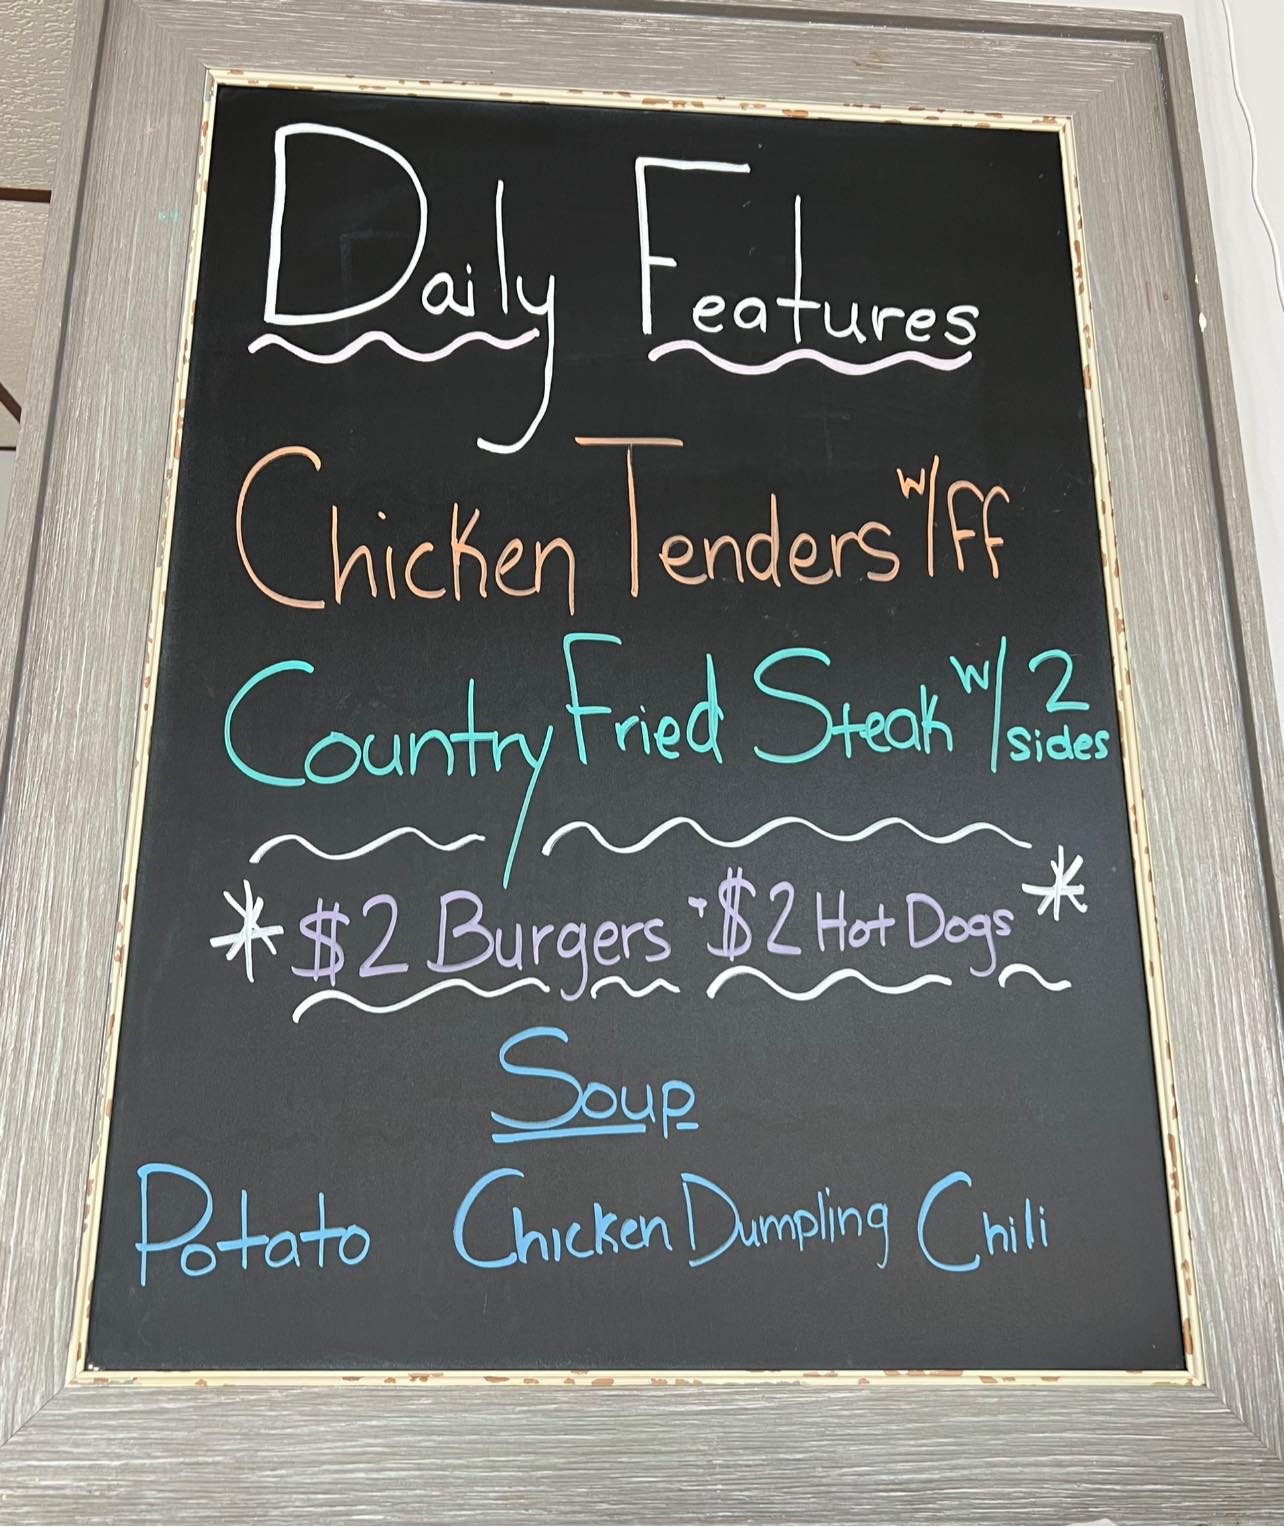 Daily Features
Chicken Tenders w/ff
Country Fried Steak w/2 sides
* $2 Burgers · $2 Hot Dogs *
Soup
Potato Chicken Dumpling Chili